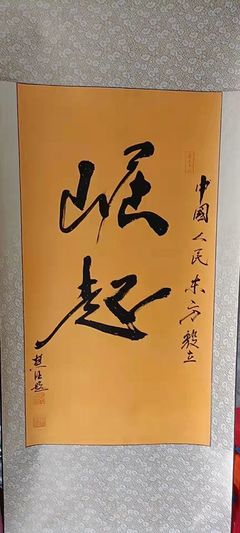 中國人民東方毅立
崛起